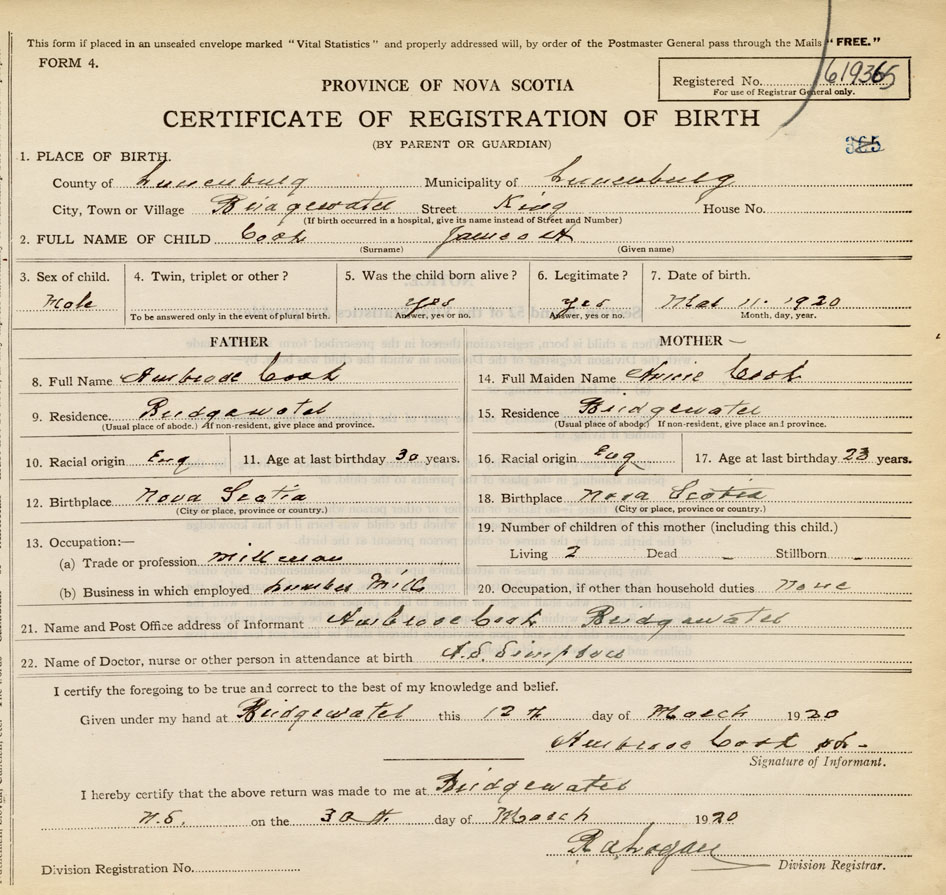 This form if placed in an unsealed envelope marked "Vital Statistics" and properly addressed will, by order of the Postmaster General pass through the Mails "FREE."
FORM 4.
Registered No. 619365
For use of Registrar General only.
PROVINCE OF NOVA SCOTIA
CERTIFICATE OF REGISTRATION OF BIRTH
(BY PARENT OR GUARDIAN)
1. PLACE OF BIRTH.
County of Lunenburg Municipality of Lunenburg
City, Town or Village Bridgewater Street King House No.
(If birth occurred in a hospital, give its name instead of Street and Number)
2. FULL NAME OF CHILD Cook James
(Surname) (Given name)
3. Sex of child. 4. Twin, triplet or other? 5. Was the child born alive? 6. Legitimate? 7. Date of birth.
Male Yes Yes Mar 11. 1920
To be answered only in the event of plural birth. Answer, yes or no. Answer, yes or no. Month, day, year.
FATHER MOTHER
8. Full Name Ambrose Cook 14. Full Maiden Name Annie Cook
9. Residence. Bridgewater 15. Residence Bridgewater
(Usual place of abode.) If non-resident, give place and province. (Usual place of abode;) If non-resident, give place and province.
10. Racial origin Eng 11. Age at last birthday 30 years. 16. Racial origin Eng 17. Age at last birthday 23 years.
12. Birthplace Nova Scotia 18. Birthplace Nova Scotia
(City or place, province or country.) (City or place, province or country.)
13. Occupation:— 19. Number of children of this mother (including this child.)
(a) Trade or profession millman Living 2 Dead – Stillborn –
(b) Business in which employed Lumber Mill 20. Occupation, if other than household duties None
21. Name and Post Office address of Informant Ambrose Cook Bridgewater
22. Name of Doctor, nurse or other person in attendance at birth
I certify the foregoing to be true and correct to the best of my knowledge and belief.
Given under my hand at Bridgewater this 12th day of March 1920
Ambrose Cook
Signature of Informant.
I hereby certify that the above return was made to me at Bridgewater
N.S. on the 30th day of March 1920
Division Registration No. Division Registrar.